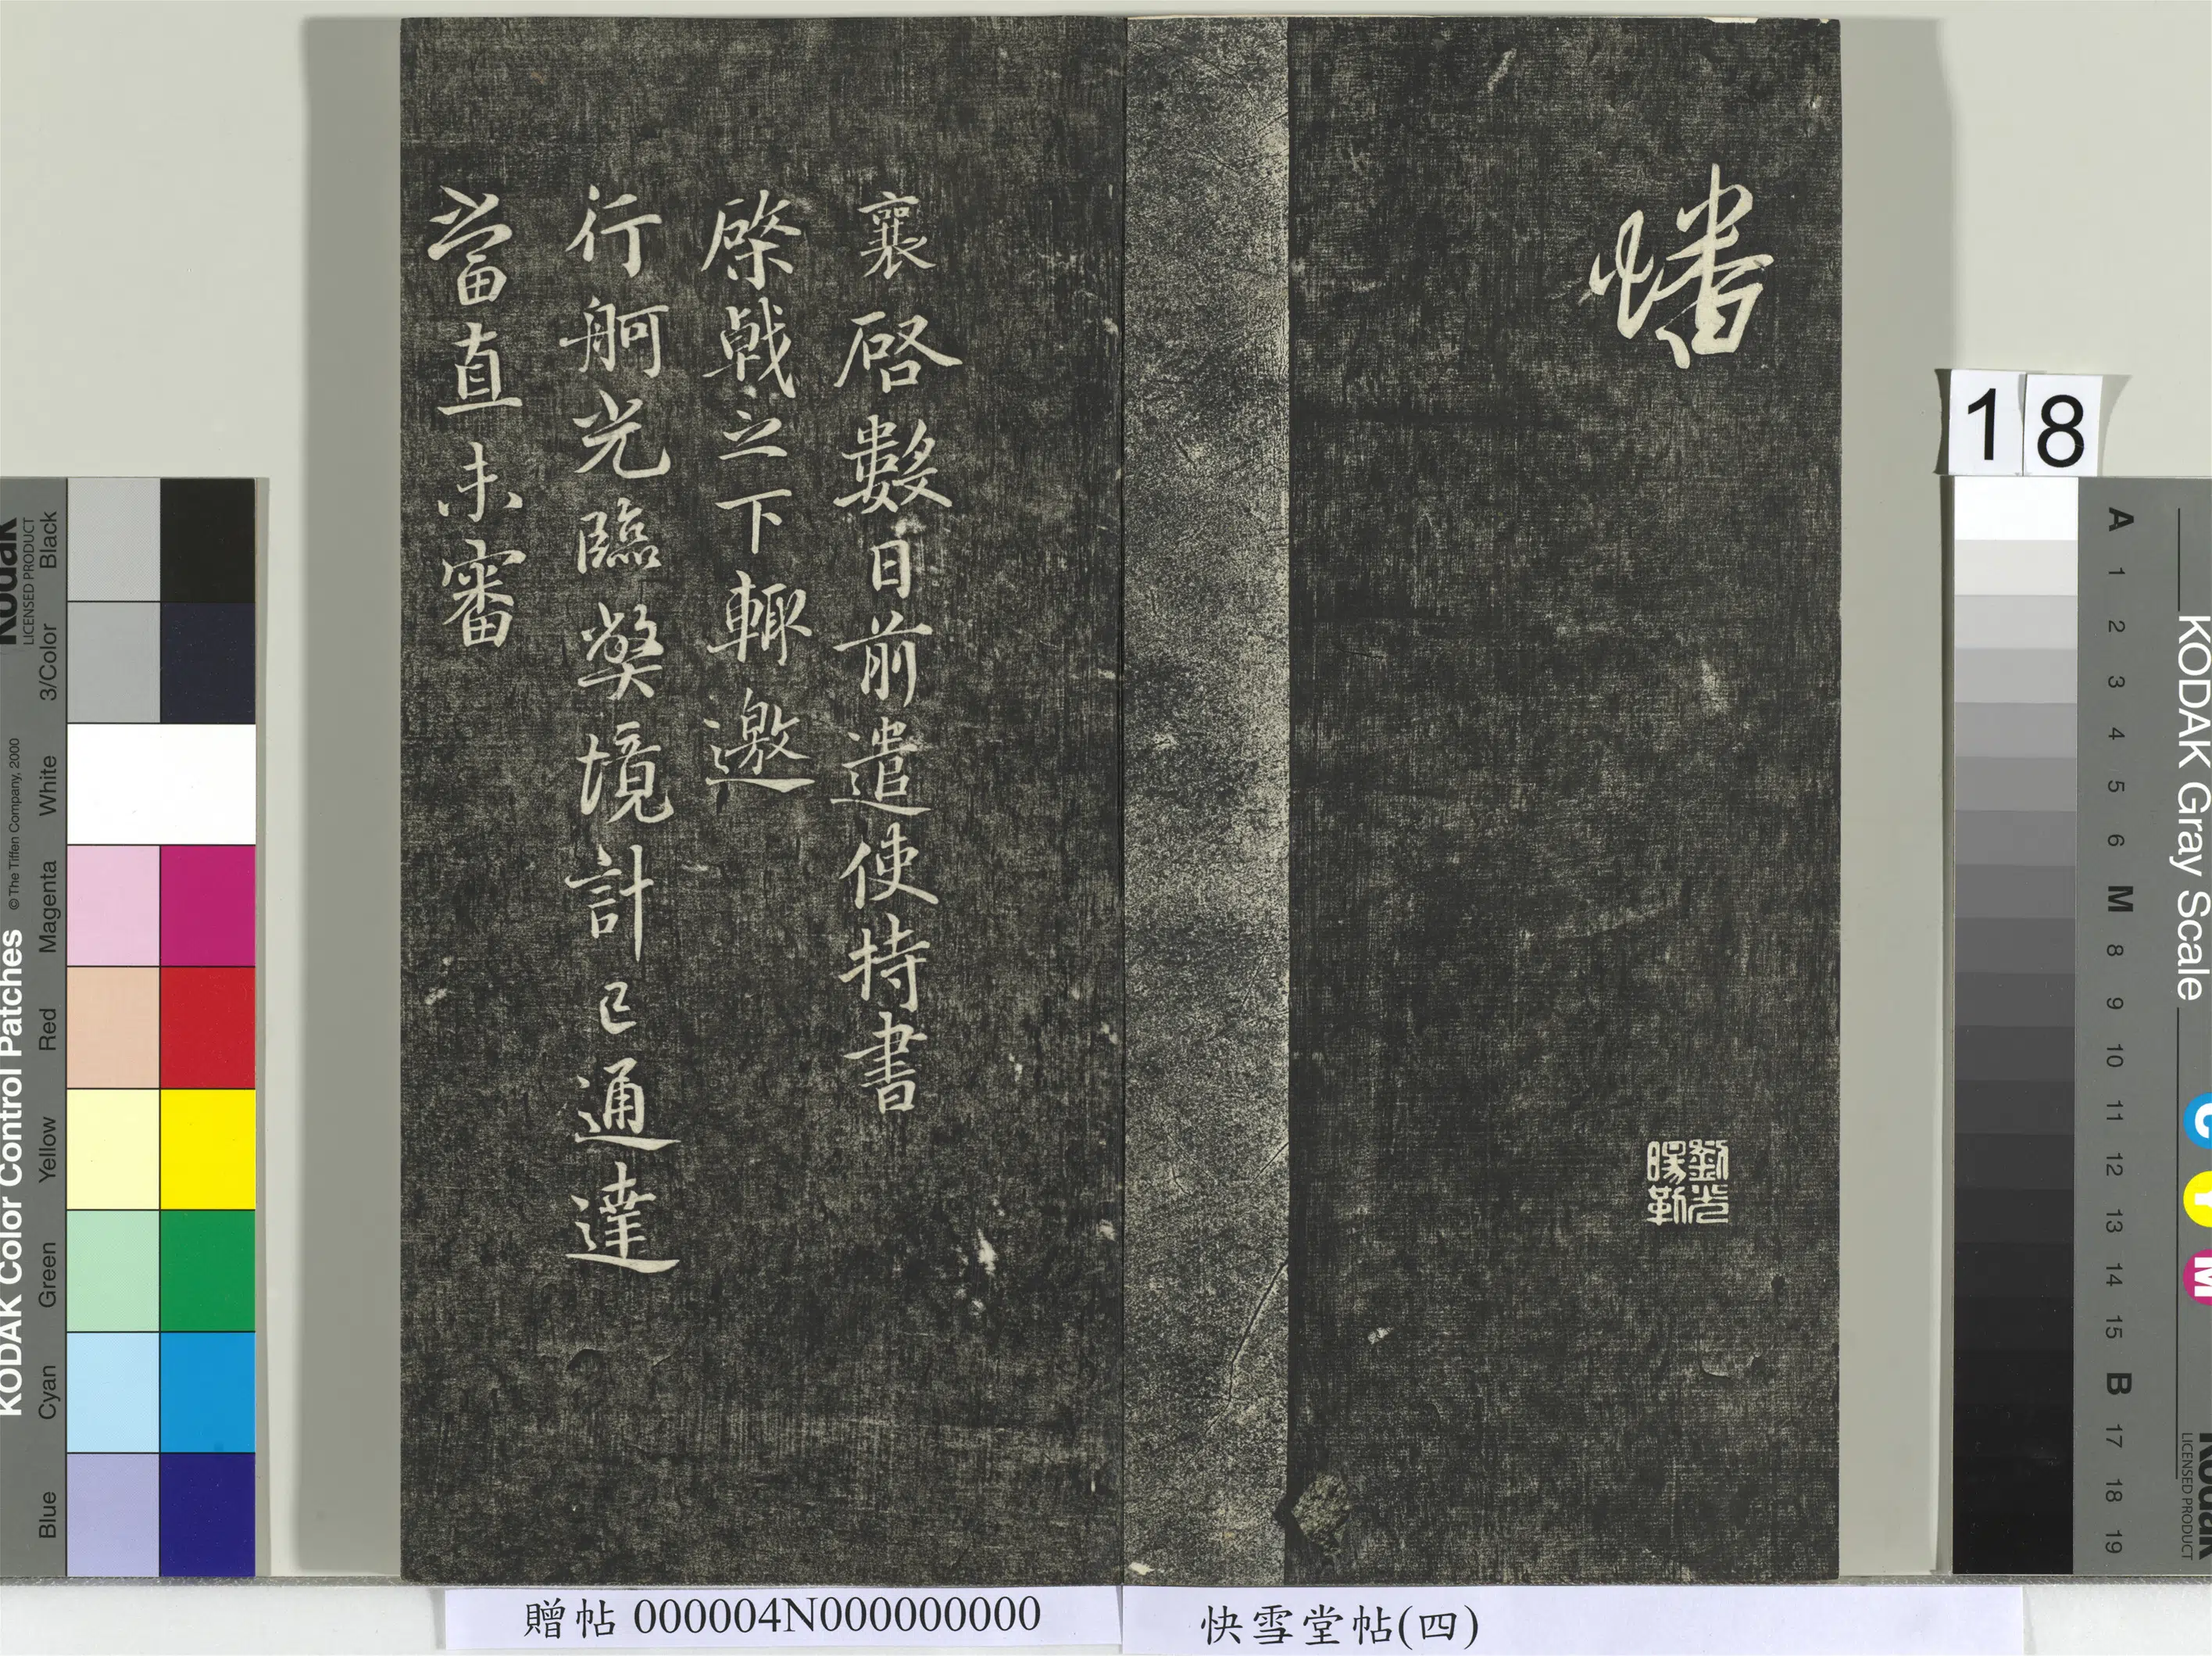 幡
劉光
暘勒
襄啓數日前遣使持書
棨戟之下輙邀
行舸光臨弊境計已通達
當直未審
18
贈帖 000004N000000000
快雪堂帖(四)
KODAK Color Control Patches
© The Tiffen Company, 2000
Kodak
LICENSED PRODUCT
Black
3/Color
White
Magenta
Red
Yellow
Green
Cyan
Blue
KODAK Gray Scale
C Y M
Kodak
LICENSED PRODUCT
A 1 2 3 4 5 6 M 8 9 10 11 12 13 14 15 B 17 18 19